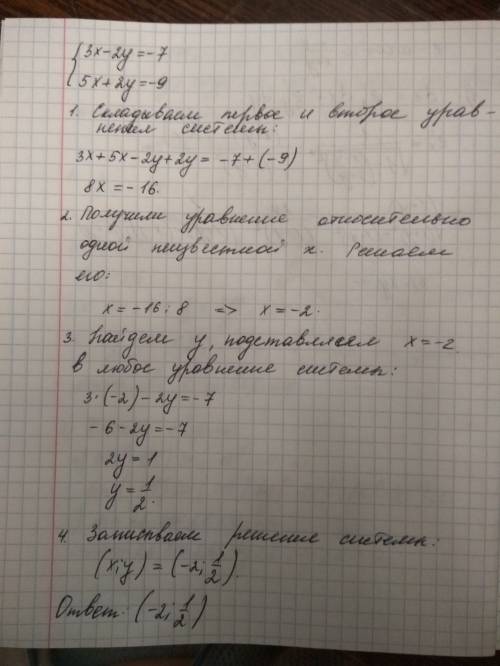 {3x-2y=-7
5x+2y=-9
1. Складываем первое и второе урав-
нением системы:
3x+5x-2y+2y= -7+(-9)
8x=-16.
2. Получили уравнение относительно
одной неизвестной x. Решаем
его:
x=-16:8 => x=-2.
3. Найдем y, подставляем x=-2
в любое уравнение системы:
3·(-2)-2y=-7
-6-2y=-7
2y=1
y=1/2.
4. Записываем решение системы:
(x;y)=(-2;1/2).
Ответ. (-2;1/2)